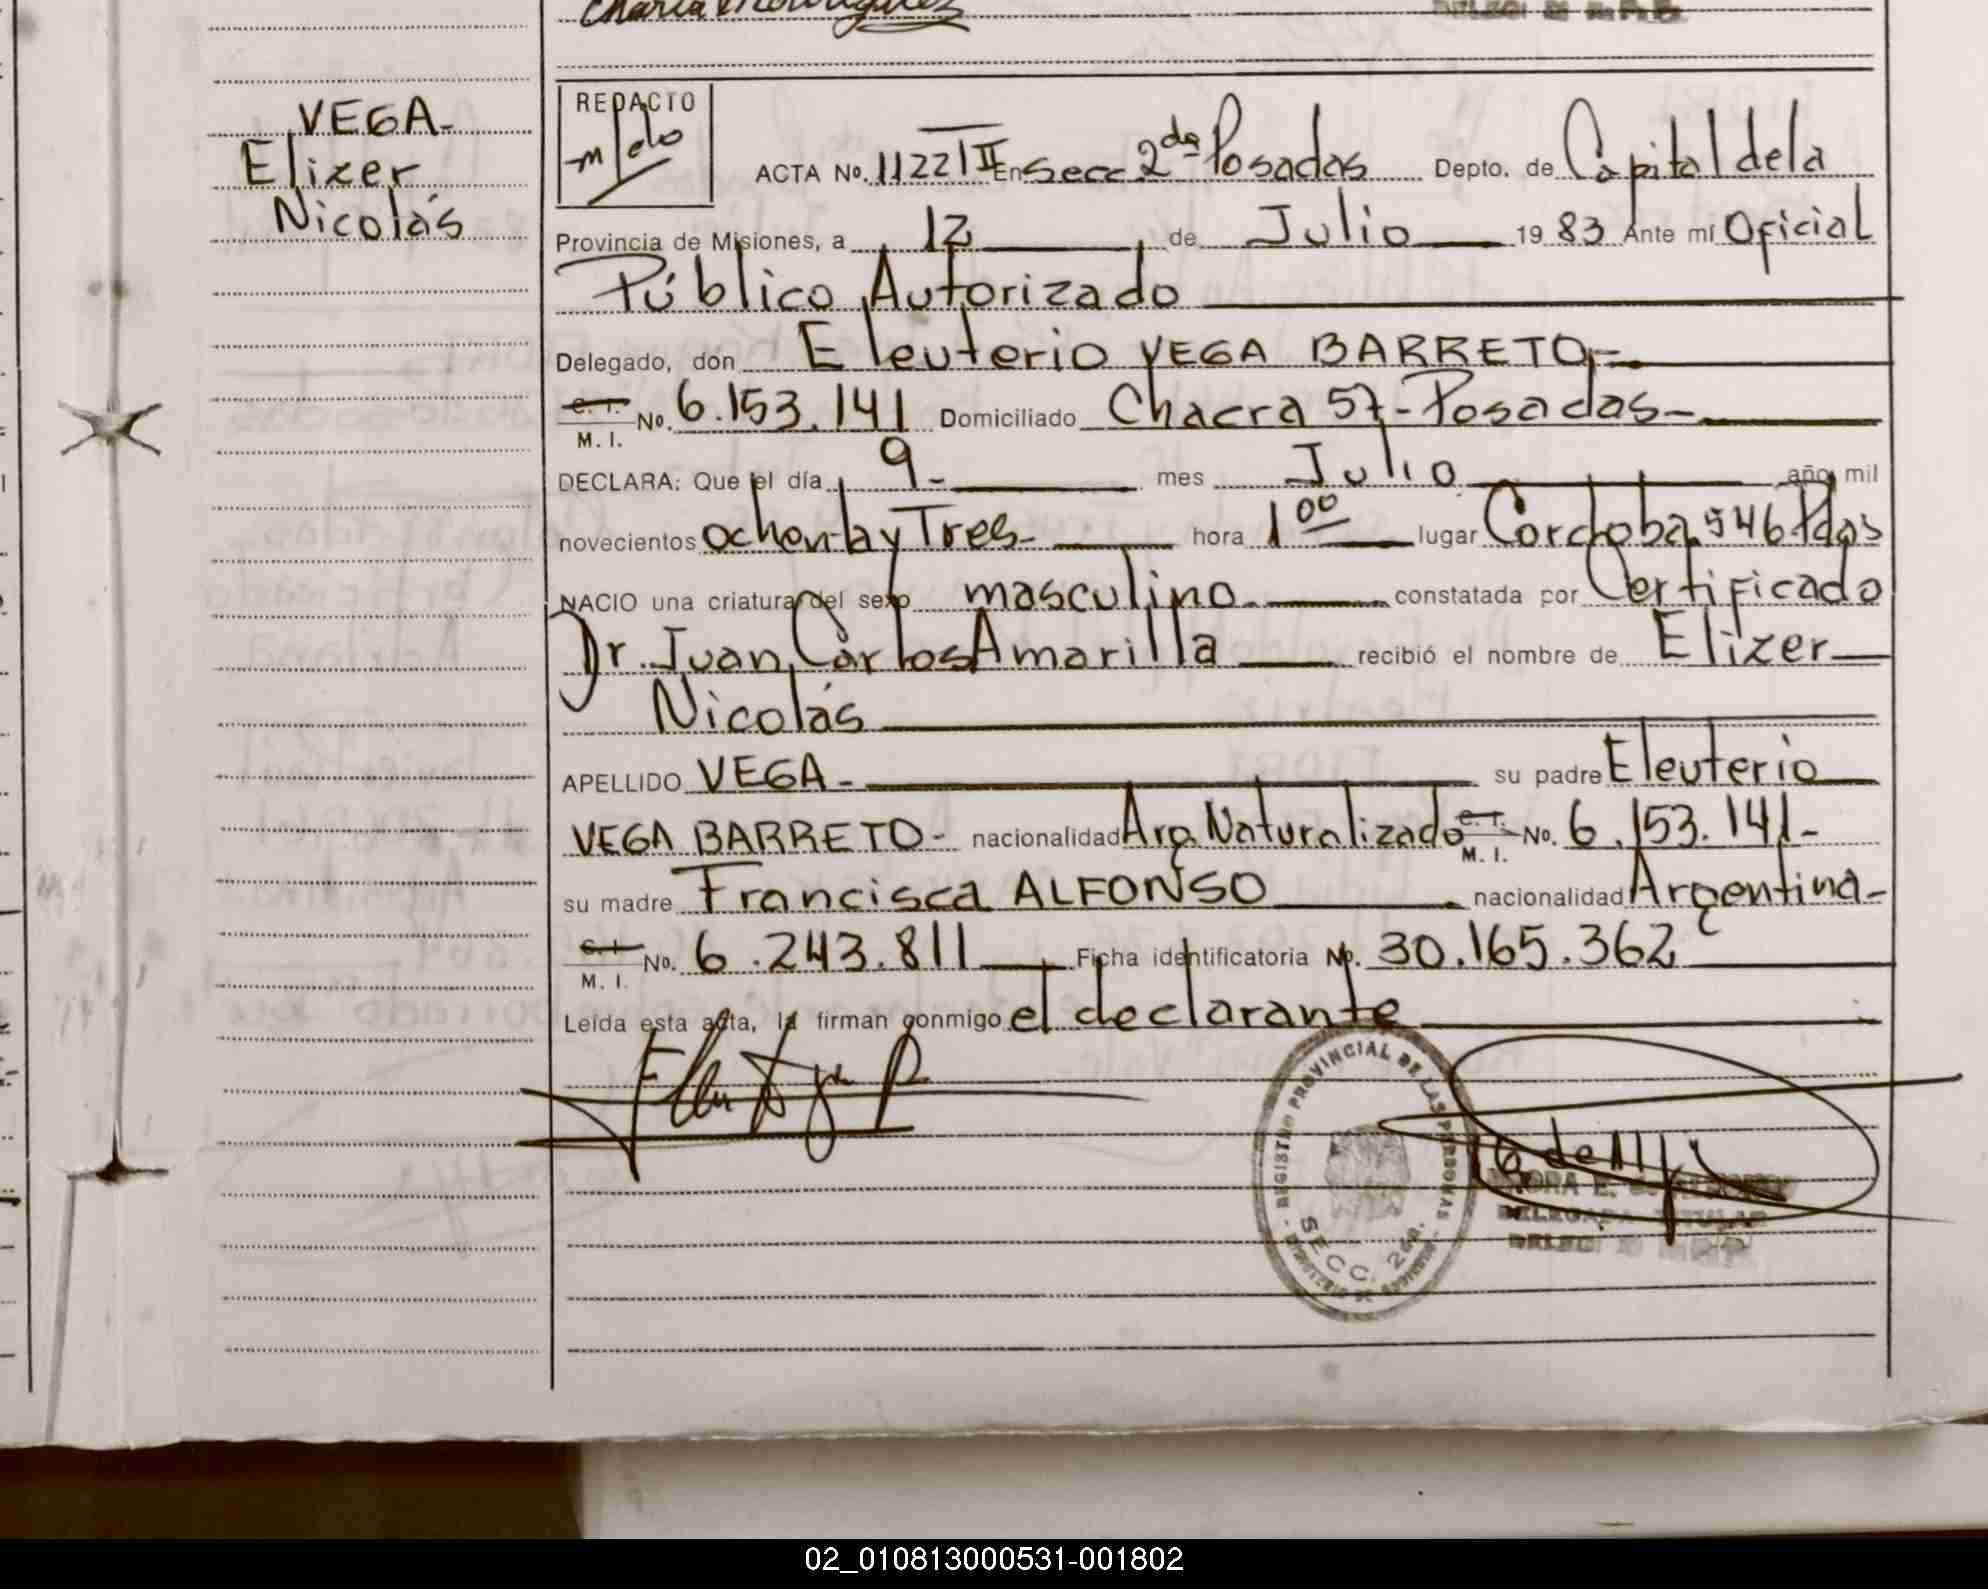 VEGA-
Elizer
Nicolás
REDACTO
ACTA No. 1122 II En Secc. 2da Posadas Depto. de Capital de la
Provincia de Misiones, a 12 de Julio 1983 Ante mí Oficial
Público Autorizado
Delegado, don Eleuterio VEGA BARRETO-
C. I. M. I. No. 6.153.141 Domiciliado Chacra 57-Posadas-
DECLARA: Que el día 9- mes Julio año mil
novecientos ochenta y Tres- hora 1 00 lugar Cordoba 546 Pdas
NACIO una criatura del sexo masculino. constatada por Certificado
Dr. Juan Carlos Amarilla recibió el nombre de Elizer
Nicolás
APELLIDO VEGA- su padre Eleuterio
VEGA BARRETO- nacionalidad Arg. Naturalizado C. I. M. I. No. 6.153.141-
su madre Francisca ALFONSO nacionalidad Argentina-
C. I. M. I. No. 6.243.811 Ficha identificatoria No. 30.165.362
Leída esta acta, la firman conmigo el declarante
REGISTRO PROVINCIAL DE LAS PERSONAS
SECC. 2da.
DELEGADA TITULAR
02_010813000531-001802